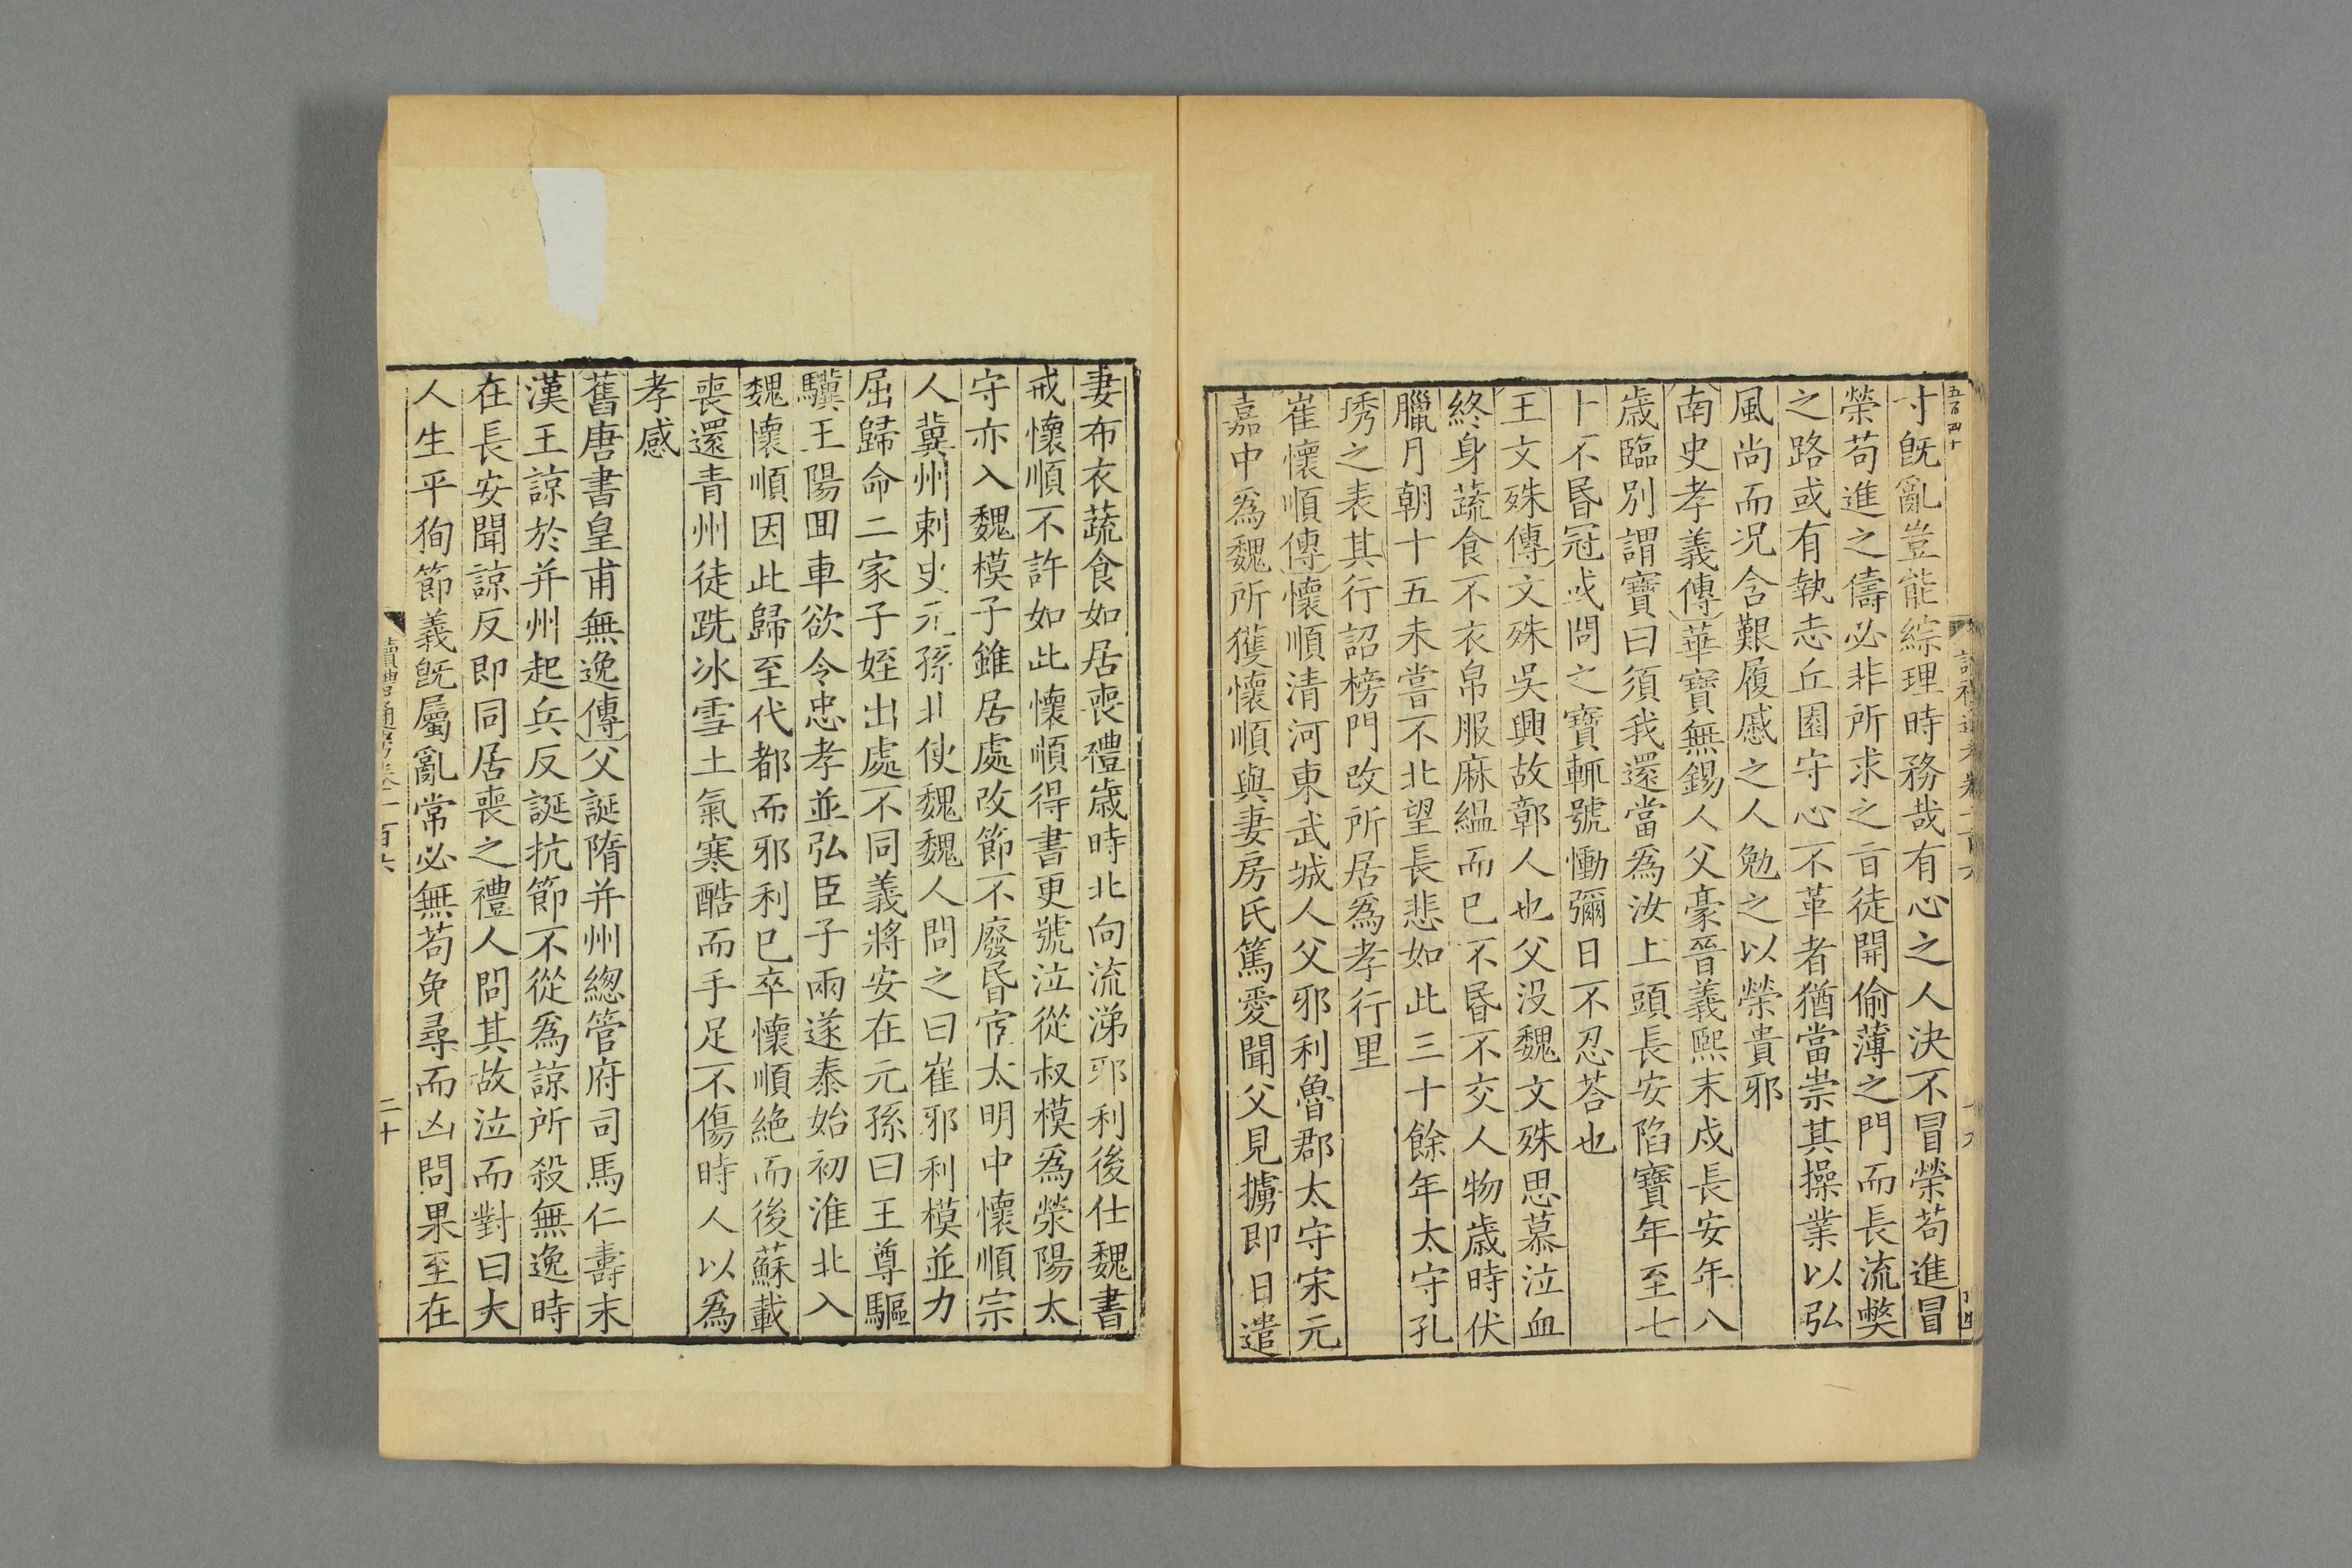 五百四十
寸旣亂豈能綜理時務哉有心之人決不冒榮苟進冒
榮苟進之儔必非所求之㫖徒開偷薄之門而長流弊
之路或有執志丘園守心不革者猶當崇其操業以弘
風尚而况含艱履慼之人勉之以榮貴邪
南史孝義傳華寶無錫人父豪晉義熙末戍長安年八
歳臨別謂寶曰須我還當爲汝上頭長安陷寶年至七
十不昏冠或問之寶輒號慟彌日不忍荅也
王文殊傳文殊吳興故鄣人也父没魏文殊思慕泣血
終身蔬食不衣帛服麻緼而已不昏不交人物歳時伏
臘月朝十五未嘗不北望長悲如此三十餘年太守孔
琇之表其行詔榜門改所居爲孝行里
崔懷順傳懷順清河東武城人父邪利魯郡太守宋元
嘉中爲魏所獲懷順與妻房氏篤愛聞父見擄即日遣
妻布衣蔬食如居喪禮歳時北向流涕邪利後仕魏書
戒懷順不許如此懷順得書更號泣從叔模爲滎陽太
守亦入魏模子雖居處改節不廢昏宦太明中懷順宗
人冀州刺史元孫北使魏魏人問之曰崔邪利模並力
屈歸命二家子姪出處不同義將安在元孫曰王尊驅
驥王陽囬車欲令忠孝並弘臣子兩遂泰始初淮北入
魏懷順因此歸至代都而邪利已卒懷順絶而後蘇載
喪還青州徒跣冰雪土氣寒酷而手足不傷時人以爲
孝感
舊唐書皇甫無逸傳父誕隋并州總管府司馬仁壽末
漢王諒於并州起兵反誕抗節不從爲諒所殺無逸時
在長安聞諒反即同居喪之禮人問其故泣而對曰大
人生平狥節義旣屬亂常必無苟免尋而凶問果至在
讀禮通考卷一百六
二十